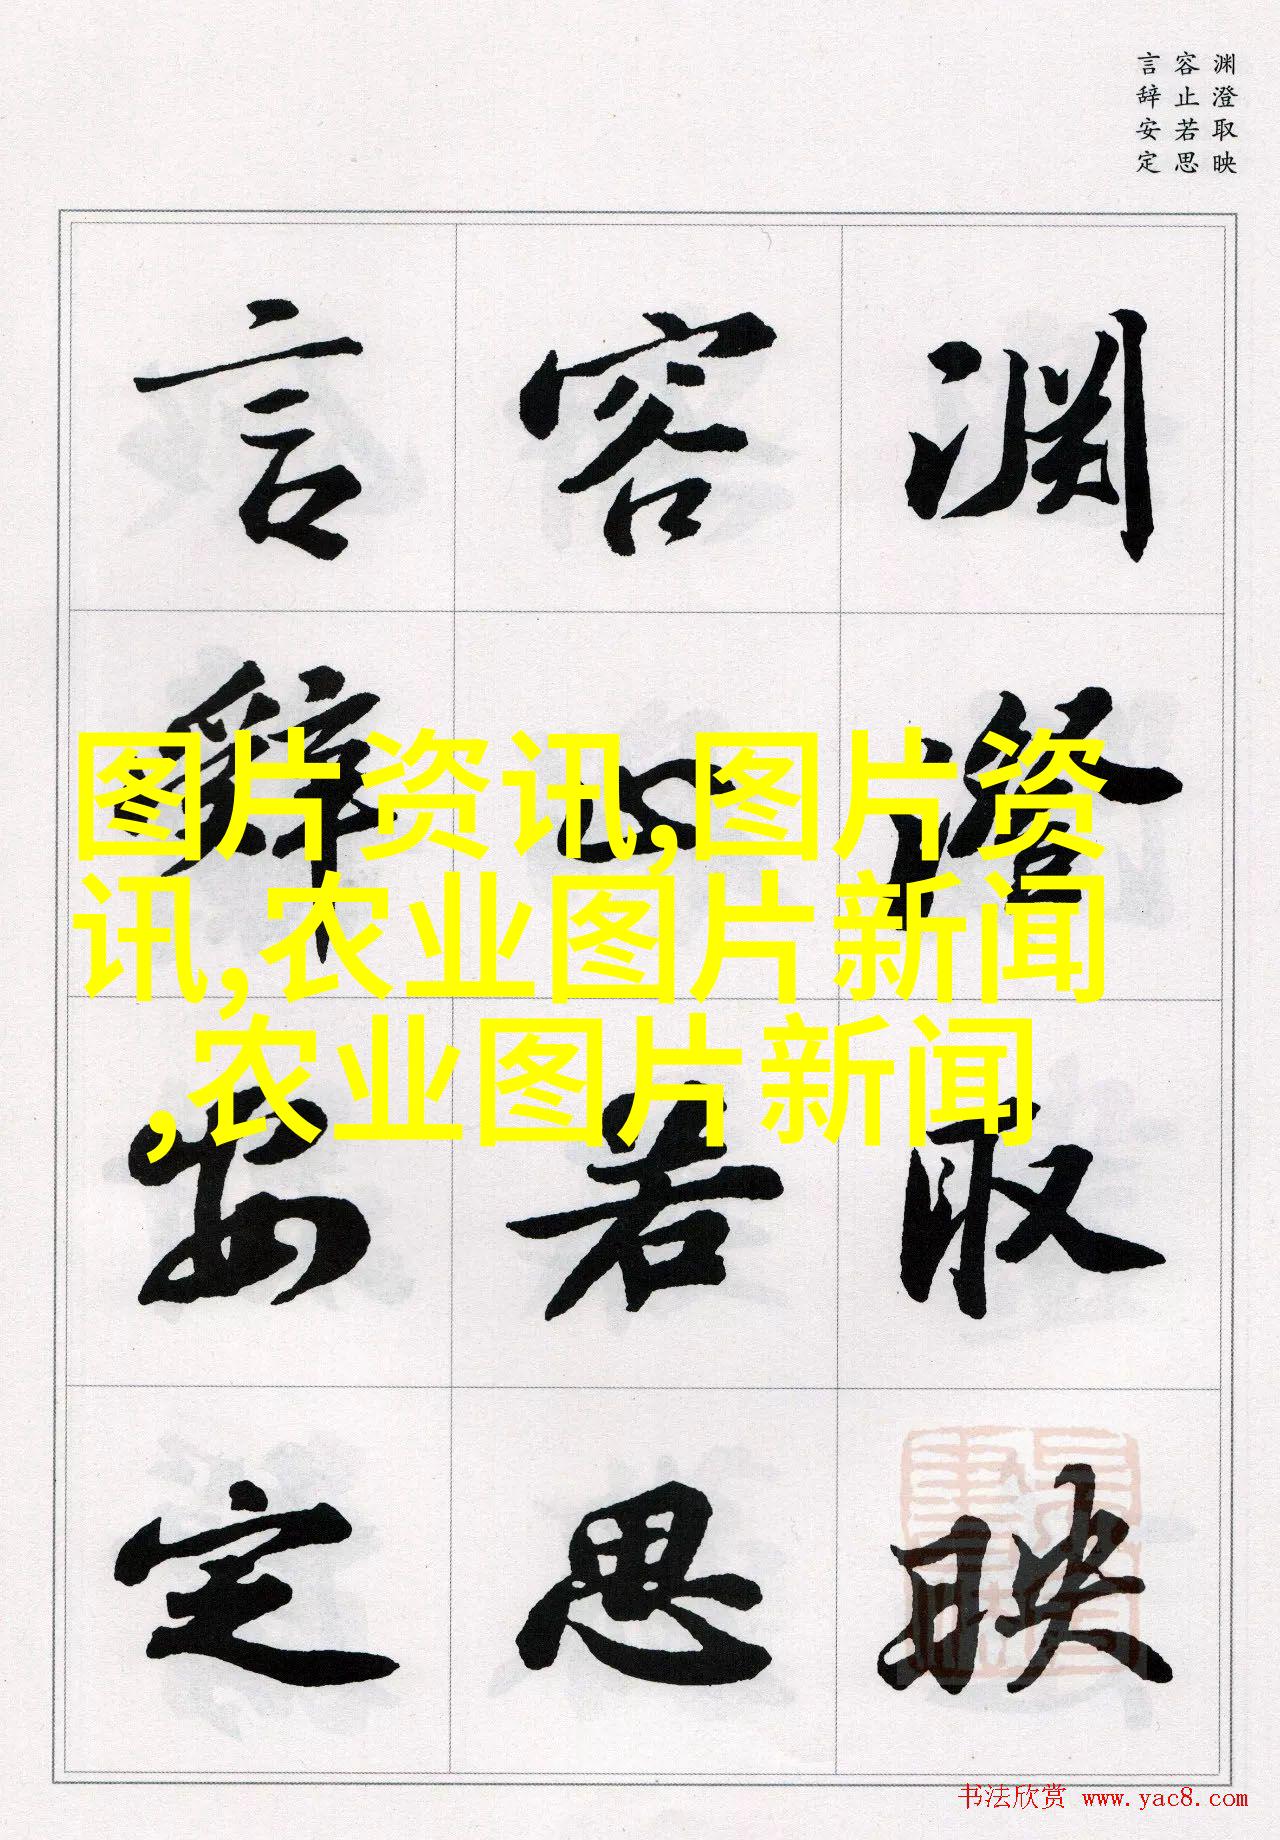 渊澄取映
容止若思
言辞安定
渊澄取映
容止若思
言辞安定
图片资讯,图片资
讯,农业图片新闻
,农业图片新闻
书法欣赏 www.yac8.com